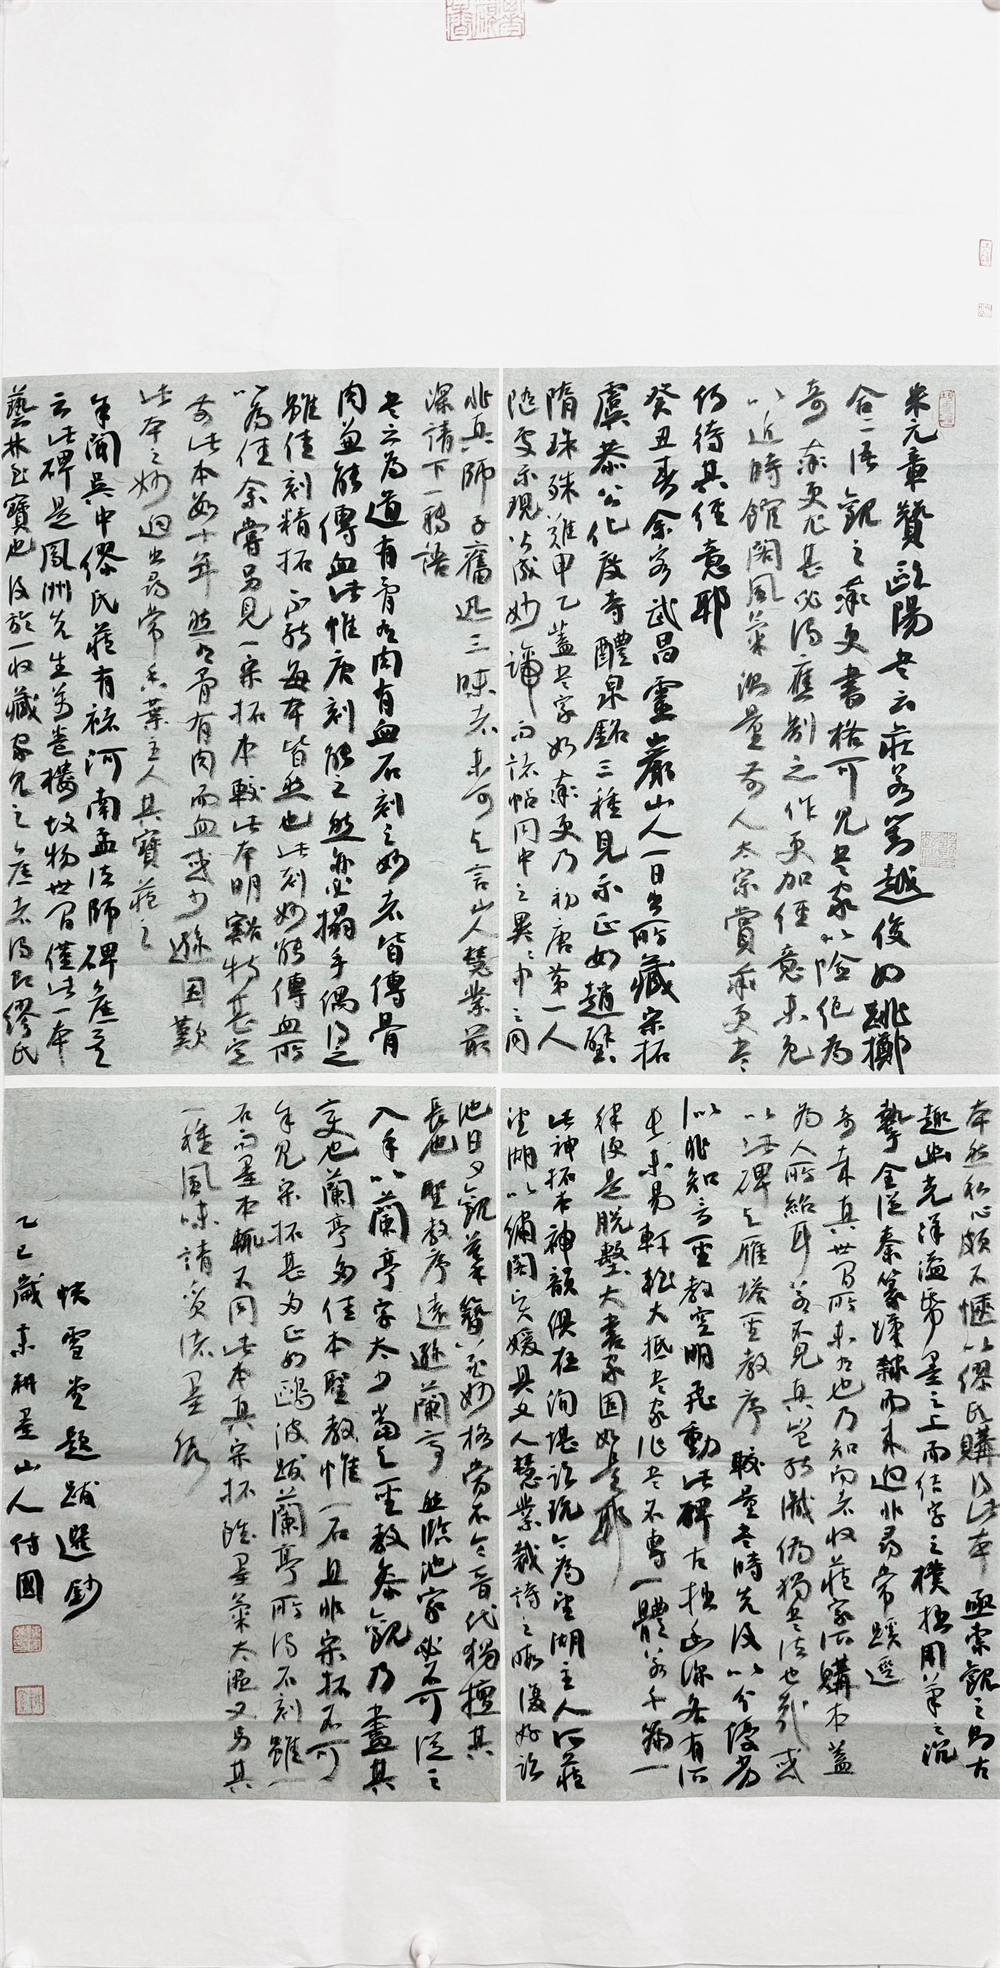 米元章贊歐陽書云莊若對越俊如跳擲
合二語觀之率更書格可見書家以險絕為
奇率更尤甚必得應制之作更加經意未免
以近時館閣風氣測量前人太宗賞率更書
仍待其經意耶
癸丑春余客武昌靈巖山人一日出所藏宋拓
虞恭公化度寺醴泉銘三種見示正如趙璧
隋珠殊難甲乙蓋書家如率更乃初唐第一人
隨處示現皆成妙諦而諸帖同中之異異中之同
非具師子奮迅三昧者未可與言山人慧業最
深請下一轉語
書之為道有骨有肉有血石刻之妙者皆傳骨
肉兼能傳血此惟唐刻能之然亦必搨手偶得之
雖佳刻精拓不能每本皆然也此刻妙能傳血所
以為佳余嘗另見一宋拓本較此本明豁特甚定
前此本數十年然有骨有肉而血或少遜因歎
此本之妙迥出尋常香葉主人其寶藏之
年聞吳中繆氏藏有褚河南孟法師碑售之
云此碑是鳳洲先生萬卷樓故物世間僅此一本
藝林至寶也後於一收藏家見之售者得即繆氏
本然私心頗不愜以繆氏購得此本亟索觀之則古
趣幽光洋溢紙墨之上而結字之樸拙用筆之沉
摯全從秦篆漢隸而來迥非尋常蹊逕
奇來真世間所未有也乃知向者收藏家所購本蓋
為人所紿耳若不見真豈能識偽獨書法也哉或
以此碑與雁塔聖教序較量書時先後以分優劣
似非知言聖教空明飛動此碑古拙幽深各有所
長未易軒輊大抵書家作書不專一體若千篇一
律便是脫墼大書家固如是耶
此神拓本神韻俱在洵堪諦玩今為望湖主人所藏
望湖以繡閣名媛具文人慧業裁詩之暇復好臨
池日夕觀摹簪花妙格當不令昔代獨擅其
長也聖教序遠遜蘭亭然臨池家必不可從之
入手以蘭亭字太少當與聖教參觀乃盡其
變也蘭亭多佳本聖教惟一石且非宋拓不可
年見宋拓甚多正如鷗波跋蘭亭所得石刻雖一
石而墨本輒不同此本真宋拓雖墨氣太濕又另具
一種風味請質諸墨緣
快雪堂題跋選鈔
乙巳歲末耕墨山人付國